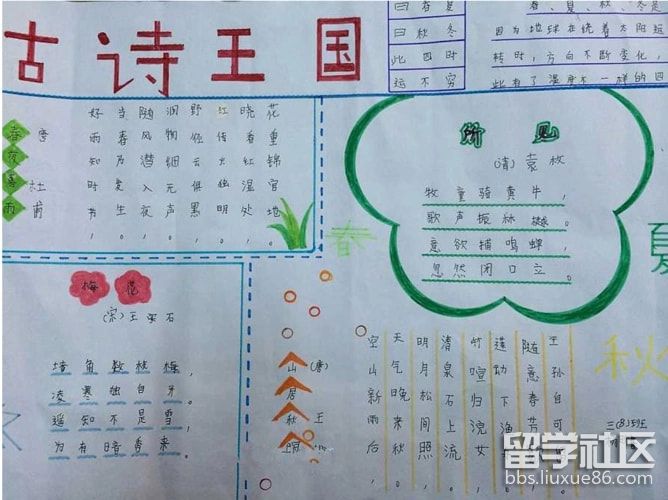 古诗王国
曰春夏
曰秋冬
此四时
运不穷
春、夏、秋、冬是
因为地球在绕着太阳运
转时，方向不断变化，
此有了温度不一样的四
春夜喜雨
唐 杜甫
好雨知时节，
当春为爱生。
随风潜入夜，
润物细无声。
野径云俱黑，
红传火独明。
晓看红湿处，
花重锦官地。
所见
(清) 袁枚
牧童骑黄牛，
歌声振林樾。
意欲捕鸣蝉，
忽然闭口立。
春
夏
秋
梅花
(宋) 王安石
墙角数枝梅，
凌寒独自开。
遥知不是雪，
为有暗香来。
山居秋暝
(唐) 王
空山新雨后，
天气晚来秋。
明月松间照，
清泉石上流。
竹喧归浣女，
莲动下渔
随意春芳
王孙自可
三(8)班
留学社区
bbs.liuxue86.com